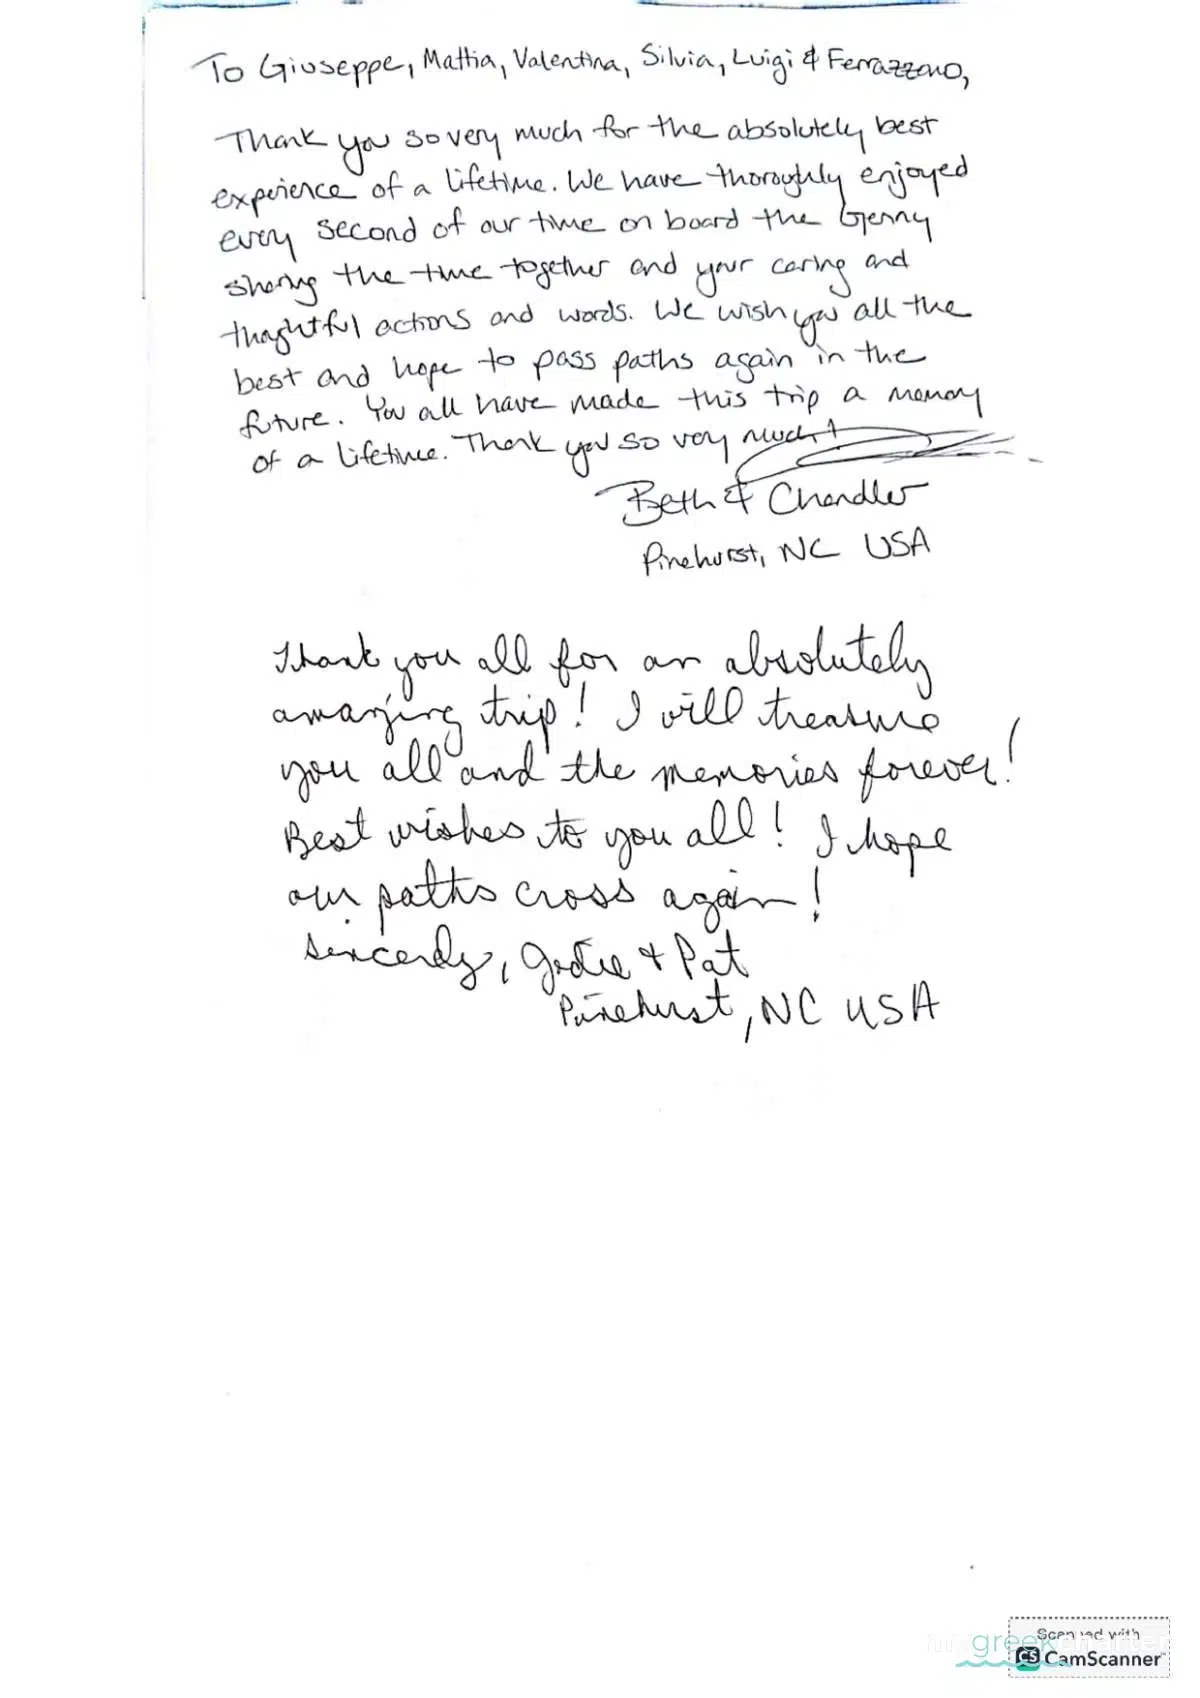 To Giuseppe, Mattia, Valentina, Silvia, Luigi & Ferrazzano,
Thank you so very much for the absolutely best
experience of a lifetime. We have thoroughly enjoyed
every second of our time on board the Genny
sharing the time together and your caring and
thoughtful actions and words. We wish you all the
best and hope to pass paths again in the
future. You all have made this trip a memory
of a lifetime. Thank you so very much!
Beth & Chandler
Pinehurst, NC USA
Thank you all for an absolutely
amazing trip! I will treasure
you all and the memories forever!
Best wishes to you all! I hope
our paths cross again!
Sincerely, Jodie + Pat
Pinehurst, NC USA
Scanned with
my greek charter
CS CamScanner